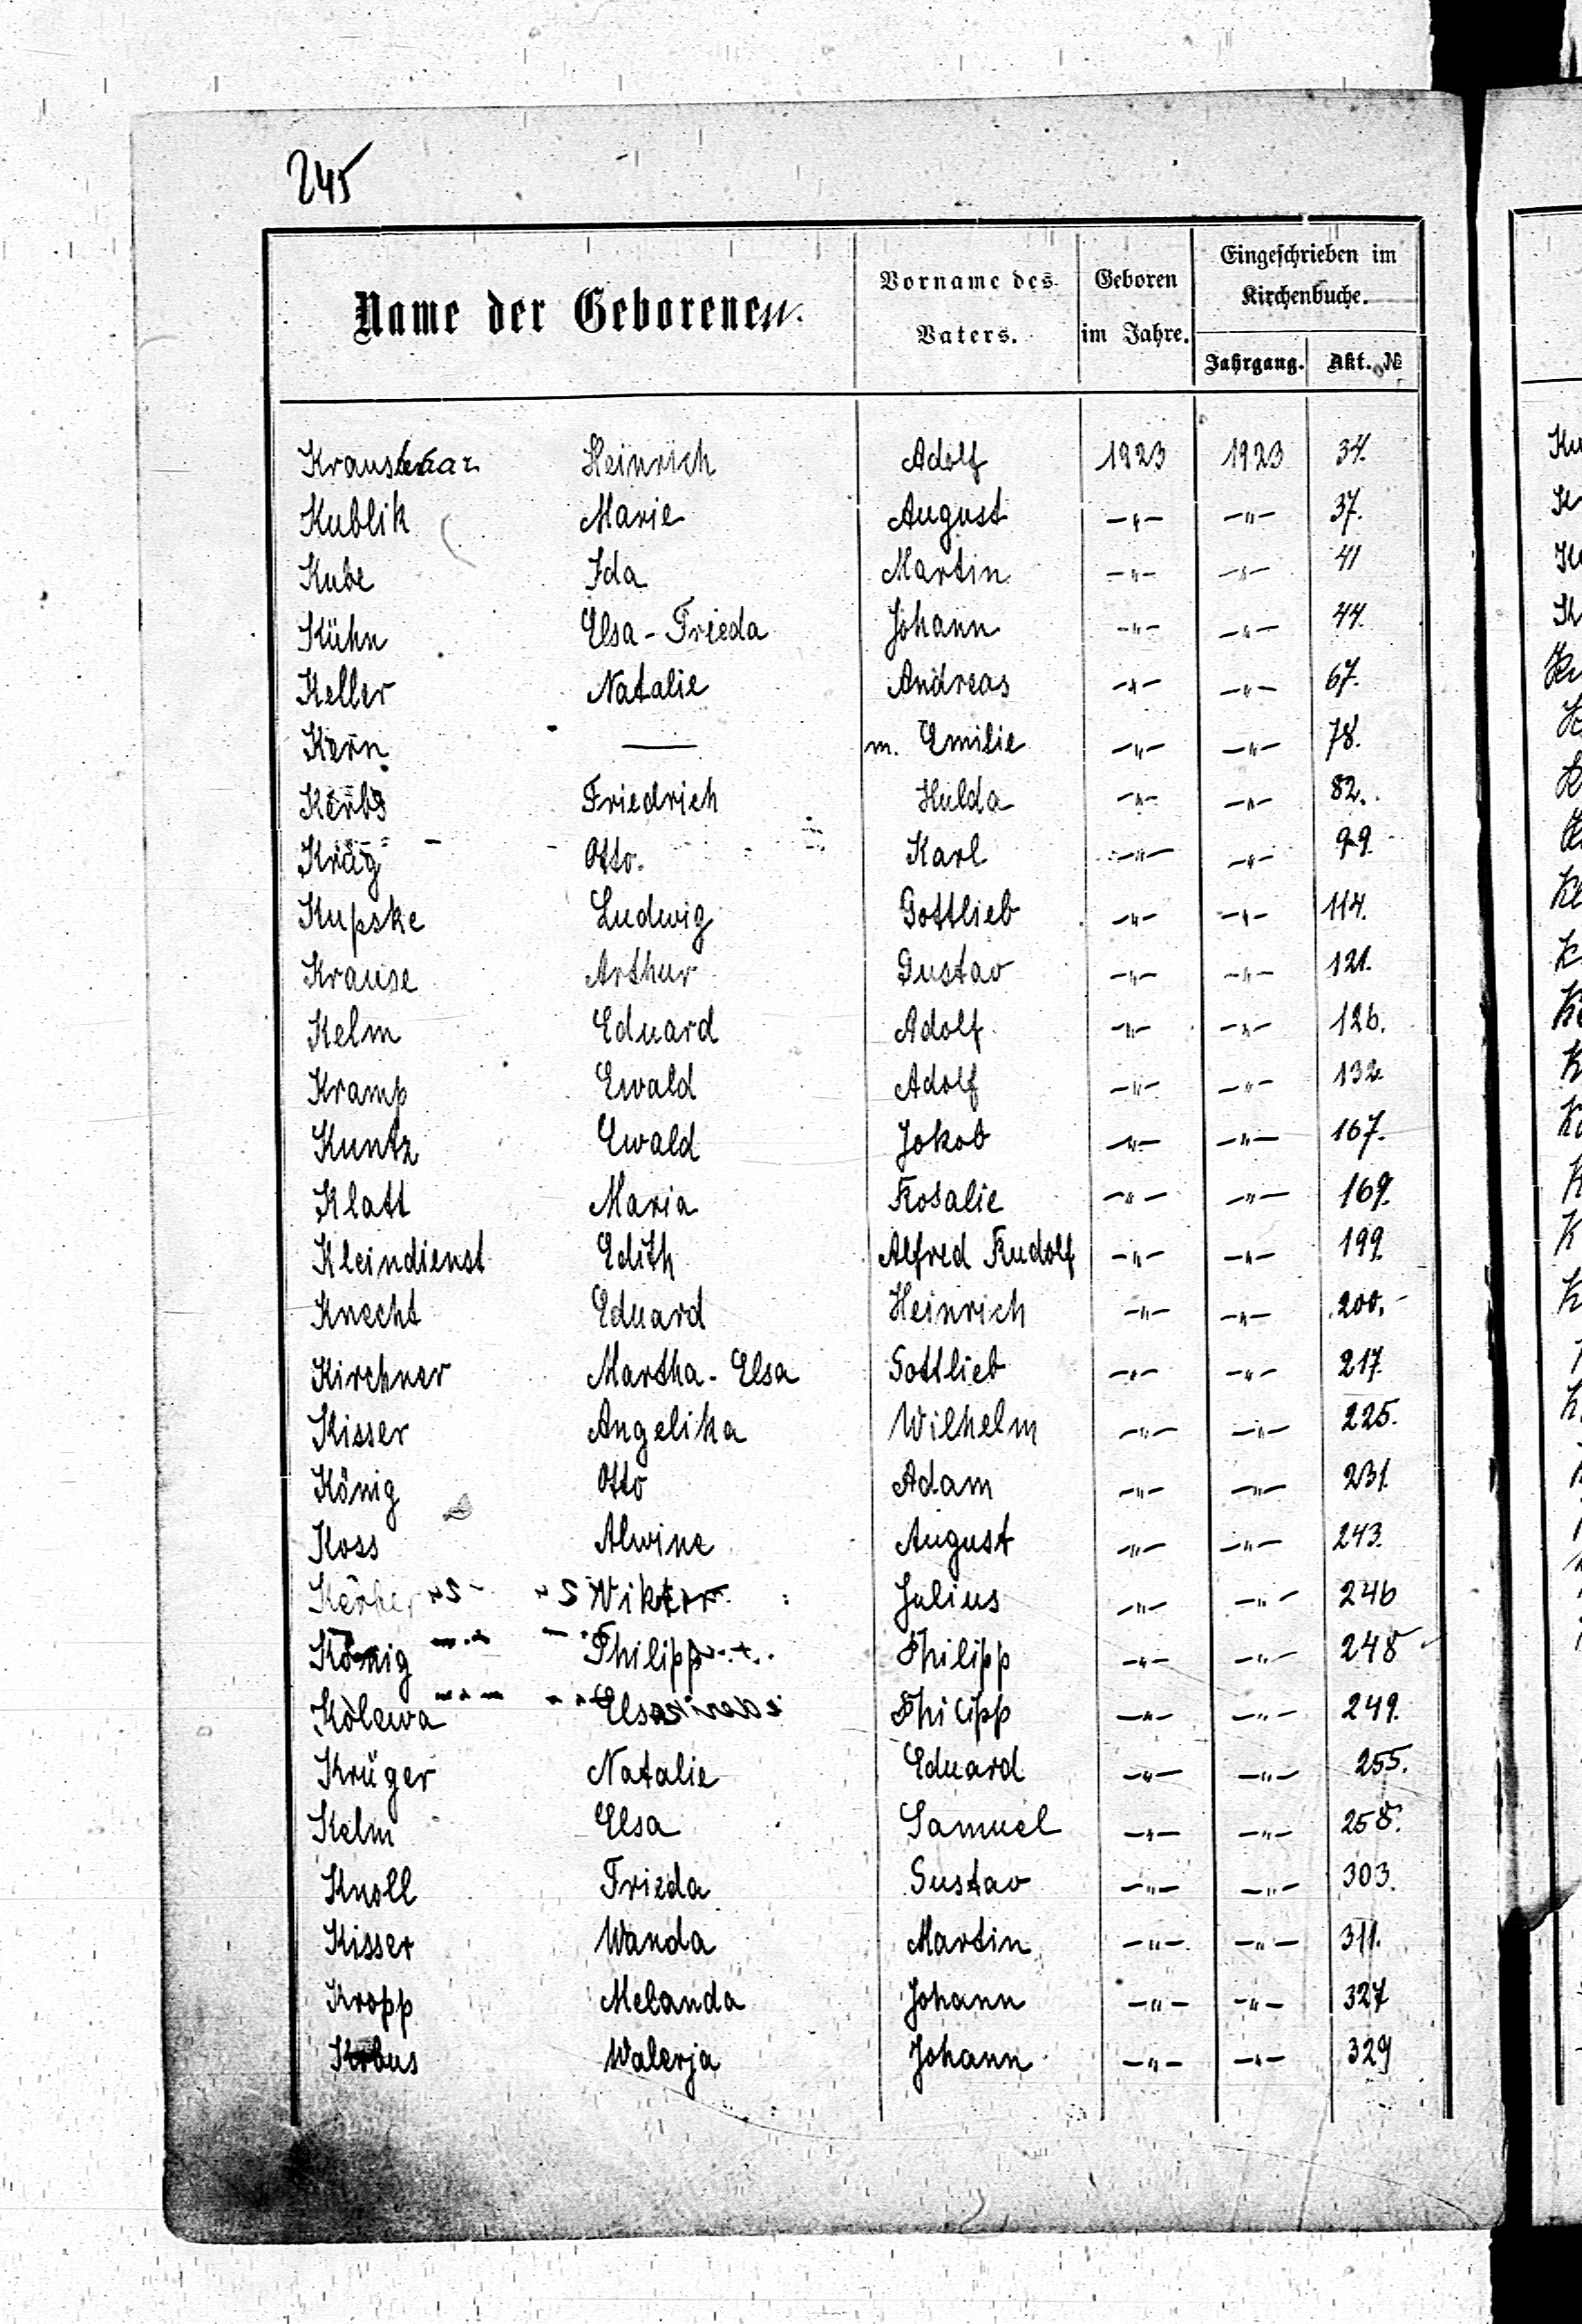 245
Name der Geborenen.
Vorname des Vaters.
Geboren im Jahre.
Eingeschrieben im Kirchenbuche.
Jahrgang.
Akt. №
Kraushaar Heinrich Adolf 1923 1923 34.
Kublik Marie August -"- -"- 37.
Kube Ida Martin -"- -"- 41
Kühn Elsa-Frieda Johann -"- -"- 44.
Keller Natalie Andreas -"- -"- 67.
Kern — m. Emilie -"- -"- 78.
Kerbs Friedrich Hulda -"- -"- 82.
Krüg Otto. Karl -"- -"- 99.
Kupske Ludwig Gottlieb -"- -"- 114.
Krause Arthur Gustav -"- -"- 121.
Kelm Eduard Adolf -"- -"- 126.
Kramp Ewald Adolf -"- -"- 132.
Kuntz Ewald Jakob -"- -"- 167.
Klatt Maria Rosalie -"- -"- 169.
Kleindienst Edith Alfred Rudolf -"- -"- 199.
Knecht Eduard Heinrich -"- -"- 200.
Kirchner Martha-Elsa Gottlieb -"- -"- 217.
Kisser Angelika Wilhelm -"- -"- 225.
König Otto Adam -"- -"- 231.
Koss Alwine August -"- -"- 243.
Wiktor Julius -"- -"- 246
König Philipp Philipp -"- -"- 248
Kolewa Elsa Philipp -"- -"- 249.
Krüger Natalie Eduard -"- -"- 255.
Kelm Elsa Samuel -"- -"- 258.
Knoll Frieda Gustav -"- -"- 303.
Kisser Wanda Martin -"- -"- 311.
Kropp Melanda Johann -"- -"- 327
Walerja Johann -"- -"- 329